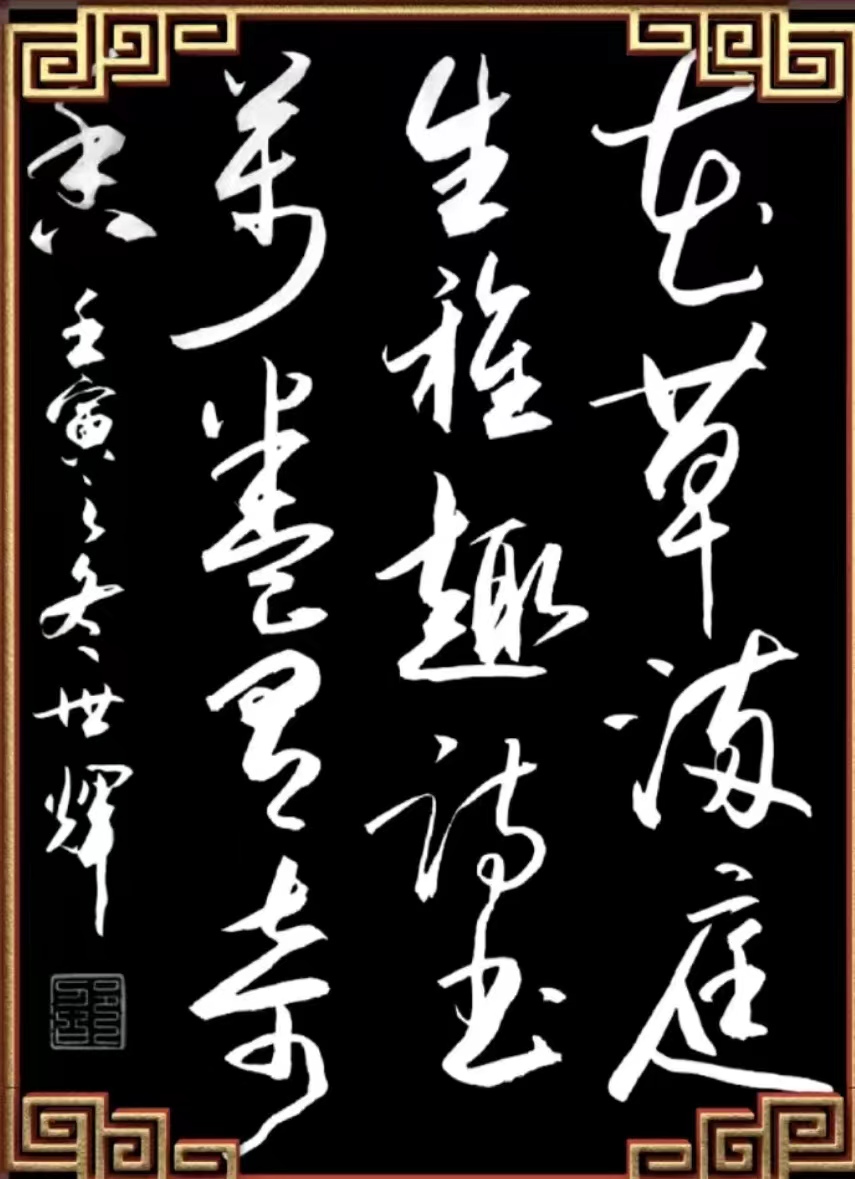 花草满庭
生雅趣诗书
萬卷奇
香 壬寅之冬世辉